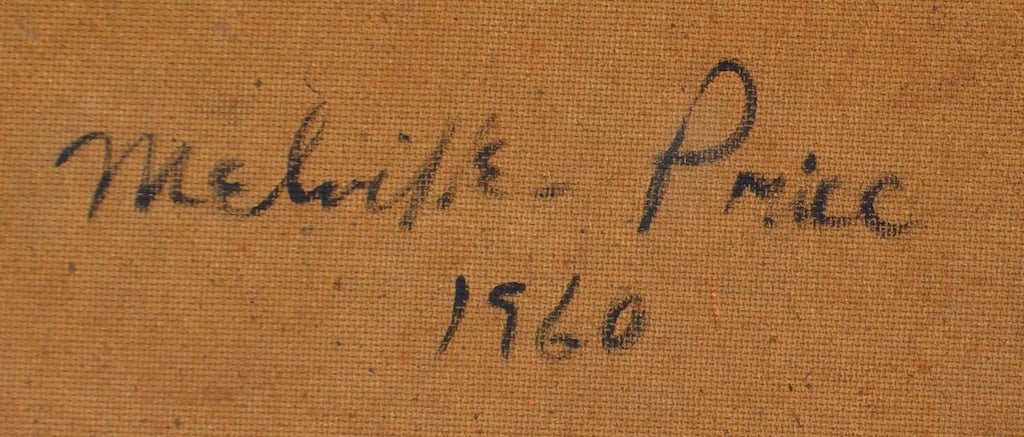 Melville Price
1960